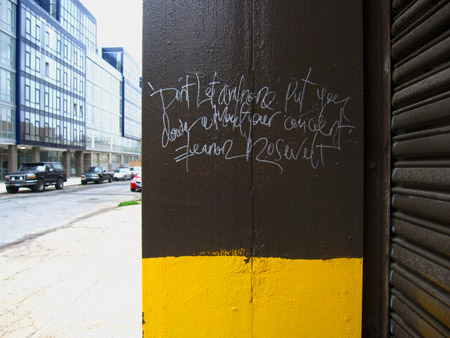 "Don't Let anyone put you
down without your consent.
Eleanor Roosevelt